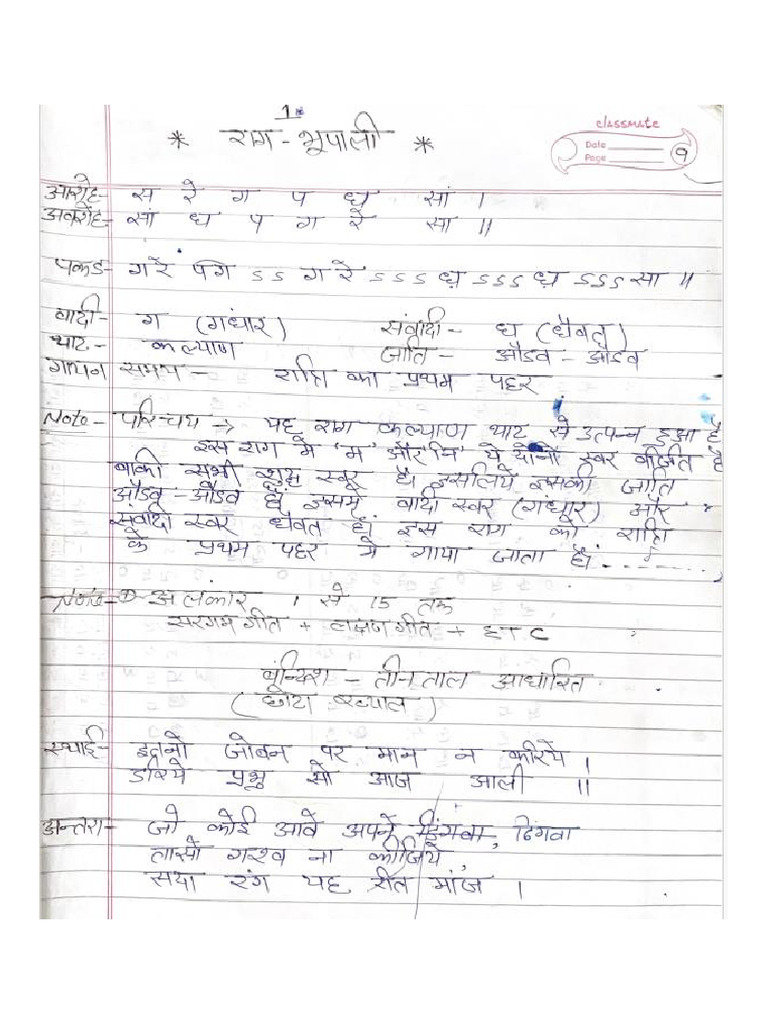 1.
classmate
* राग - भूपाली *
Date
Page 9
आरोह- स रे ग प ध सां ।
अवरोह- सां ध प ग रे सा ॥
पकड- ग रे प ग ऽ ऽ ग रे ऽ ऽ ऽ ध़ ऽ ऽ ऽ ध़ ऽ ऽ ऽ सा ॥
वादी - ग (गंधार) संवादी - ध (धैवत)
थाट - कल्याण जाति - औडव - औडव
गायन समय - रात्रि का प्रथम पहर
Note - परिचय → यह राग कल्याण थाट से उत्पन्न हुआ है
इस राग में 'म' और 'नि' ये दोनों स्वर वर्जित है
बाकी सभी शुद्ध स्वर है। इसलिये इसकी जाति
औडव - औडव है। इसमें वादी स्वर (गंधार) और
संवादी स्वर धैवत है। इस राग को रात्रि
के प्रथम पहर में गाया जाता है।
Note - अलंकार 1 से 15 तक
सरगम गीत + लक्षण गीत + ETC
बन्दिश - तीनताल आधारित
(छोटा ख्याल)
स्थाई- इतनो जोबन पर मान न करिये ।
डरिये प्रभु सो आज आली ॥
अन्तरा- जो कोई आवे अपने ढिंगवा, ढिंगवा
तासो गरव ना कीजिये,
सदा रंग यह रीत मांज ।